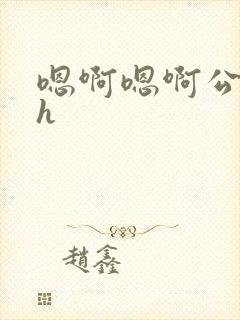 嗯啊嗯啊公
h
趙鑫